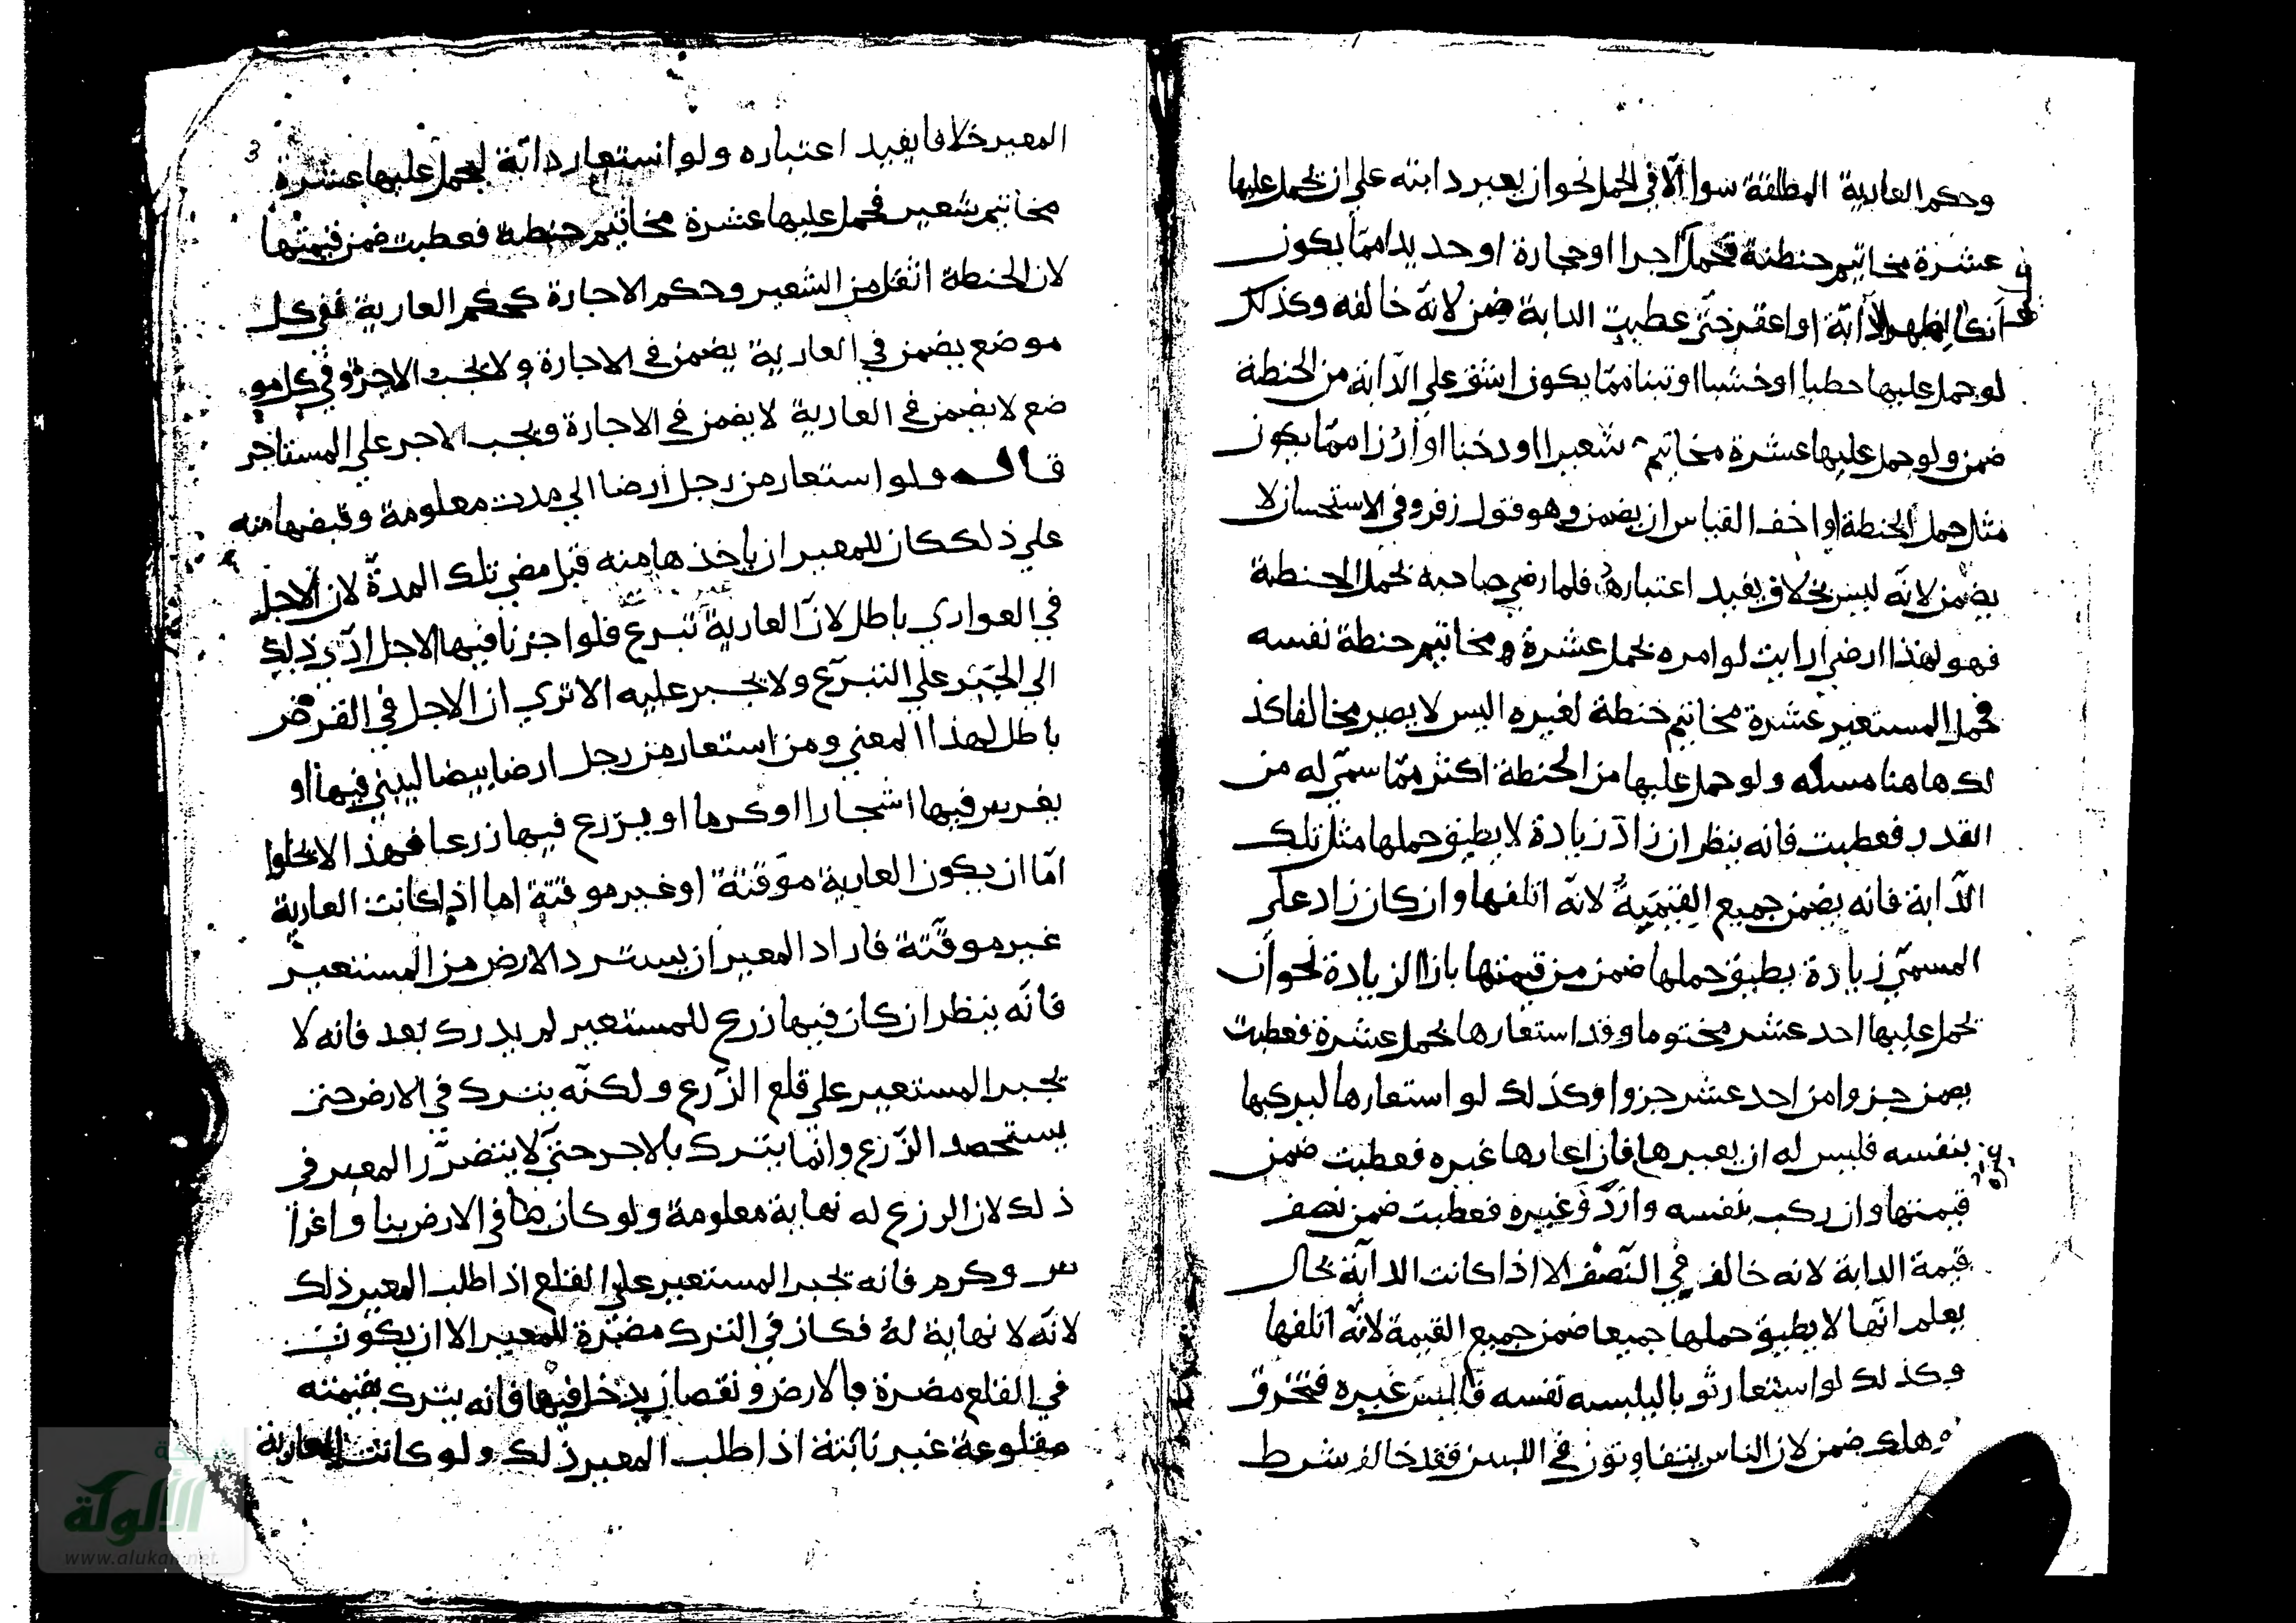 وحكم العارية المطلقة سوا الّا في الحمل نحو ان يعير دابته على ان يحمل عليها
عشرة مخاتيم حنطة فحمل اجرا او حجارة او حديدا ممّا يكون
أنكا لظهر الدابّة او اعقر حتّى عطبت الدابة ضمن لانّه خالفه وكذلك
لو حمل عليها حطبا او خشبا او تبنا ممّا يكون اشق على الدّابة من الحنطة
ضمن ولو حمل عليها عشرة مخاتيم شعيرا او دخنا او أرُزا ممّا يكون
مثل حمل الحنطة او اخف القياس ان يضمن وهو قول زفر وفي الاستحسان لا
يضمن لانّه ليس بخلاف يفيد اعتباره فلما رضي صاحبه بحمل الحنطة
فهو لهذا ارضى ارايت لو امره بحمل عشرة مخاتيم حنطة نفسه
فحمل المستعير عشرة مخاتيم حنطة لغيره اليس لا يصير مخالفا كذ
لك هاهنا مسله ولو حمل عليها من الحنطة اكثر ممّا سمّى له من
القدر فعطبت فانه ينظر ان زاد زيادة لا يطيق حملها مثل تلك
الدّابة فانه يضمن جميع القيمة لانّه اتلفها وان كان زاد على
المسمّى زيادة يطيق حملها ضمن من قيمتها بازا الزيادة نحو ان
يحمل عليها احد عشر مختوما وقد استعارها بحمل عشرة فعطبت
يضمن جزوا من احد عشر جزوا وكذلك لو استعارها ليركبها
بنفسه فليس له ان يعيرها فان اعارها غيره فعطبت ضمن
قيمتها وان ركب بنفسه واردف غيره فعطبت ضمن نصف
قيمة الدابة لانه خالف في النّصف الا اذا كانت الدابّة بحال
يعلم انّها لا يطيق حملها جميعا ضمن جميع القيمة لانّه اتلفها
وكذلك لو استعار ثوبا ليلبسه نفسه فالبس غيره فتخرق
وهلك ضمن لان الناس يتفاوتون في اللبس فقد خالف شرط
3
المعير خلافا يفيد اعتباره ولو استعار دابّة ليحمل عليها عشرة
مخاتيم شعير فحمل عليها عشرة مخاتيم حنطة فعطبت ضمن قيمتها
لان الحنطة اثقل من الشعير وحكم الاجارة كحكم العارية ففي كل
موضع يضمن في العارية يضمن في الاجارة ولا يجب الاجرة وفي كل مو
ضع لا يضمن في العارية لا يضمن في الاجارة ويجب الاجر على المستاجر
قال ولو استعار من رجل أرضا الى مدت معلومة وقبضها منه
على ذلك كان للمعير ان ياخذها منه قبل مضي تلك المدة لان الاجل
في العواري باطل لانّ العارية تبرّع فلو اجزنا فيها الاجل ادّى ذلك
الى الجَبْر على التبرّع ولا يجبر عليه الا ترى ان الاجل في القرض
باطل لهذا المعنى ومن استعار من رجل ارضا بيضا ليبني فيها او
يغرس فيها اشجارا او كرما او يزرع فيها زرعا فهذا لا يخلوا
امّا ان يكون العارية موقتة او غير موقتة اما اذا كانت العارية
غير موقّتة فاراد المعير ان يسترد الارض من المستعير
فانّه ينظر ان كان فيها زرع للمستعير لم يدرك بعد فانه لا
يجبر المستعير على قلع الزّرع ولكنّه يترك في الارض حتى
يستحصد الزّرع وانّما يترك بالاجر حتّى لا يتضرّر المعير في
ذلك لان الرزع له نهاية معلومة ولو كان هنا في الارض بنا واغرا
س وكرم فانه يجبر المستعير على القلع اذا طلب المعير ذلك
لانّه لا نهاية له فكان في الترك مضرّة للمعير الا ان يكون
في القلع مضرة بالارض ونقصان يدخل فيها فانه يترك بقيمته
مقلوعة غير نابتة اذا طلب المعير ذلك ولو كانت العارية
شبكة
الألوكة
www.alukah.net